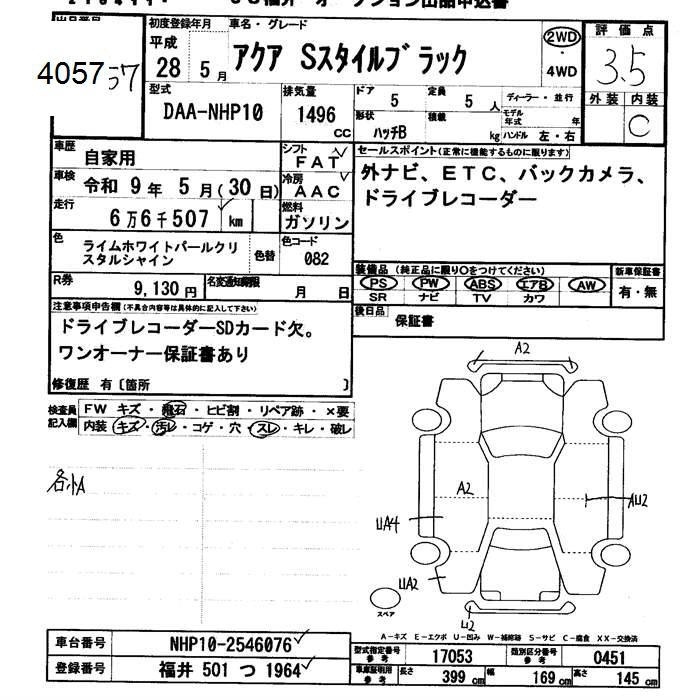 出品番号
40577
初度登録年月
平成
28 5月
車名・グレード
アクア Sスタイルブラック
2WD
・
4WD
評価点
3.5
外装 内装
C
型式
DAA-NHP10
排気量
1496
CC
ドア 5
定員 5人
形状 ハッチB
積載 kg
ディーラー・並行
モデル年式 年
ハンドル 左・右
車歴
自家用
シフト
FAT
車検
令和 9年 5月(30日)
冷房
AAC
走行
6万6千507 km
燃料
ガソリン
セールスポイント(正常に機能するものに限ります)
外ナビ、ETC、バックカメラ、
ドライブレコーダー
色
ライムホワイトパールクリ
スタルシャイン
色替
色コード
082
R券
9,130円
名変通知期限
月 日
装備品(純正品に限り○をつけてください)
PS PW ABS エアB AW
SR ナビ TV カワ
新車保証書
有・無
後日品
保証書
注意事項申告欄(不具合内容等は具体的に記入して下さい)
ドライブレコーダーSDカード欠。
ワンオーナー保証書あり
修復歴 有〔箇所 〕
検査員
記入欄
FW キズ・飛石・ヒビ割・リペア跡・×要
内装 キズ・汚レ・コゲ・穴・スレ・キレ・破レ
各小A
A2
A2
AU2
UA4
UA2
U2
スペア
A-キズ E-エクボ U-凹み W-補修跡 S-サビ C-腐食 XX-交換済
車台番号
NHP10-2546076
登録番号
福井 501 つ 1964
型式指定番号
参考
17053
類別区分番号
参考
0451
車庫証明用
参考
長さ 399 cm
幅 169 cm
高さ 145 cm